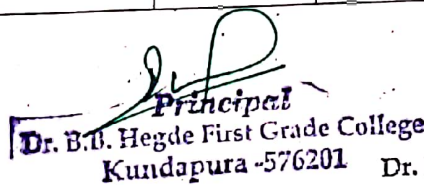 Principal
Dr. B.B. Hegde First Grade College
Kundapura -576201 Dr.